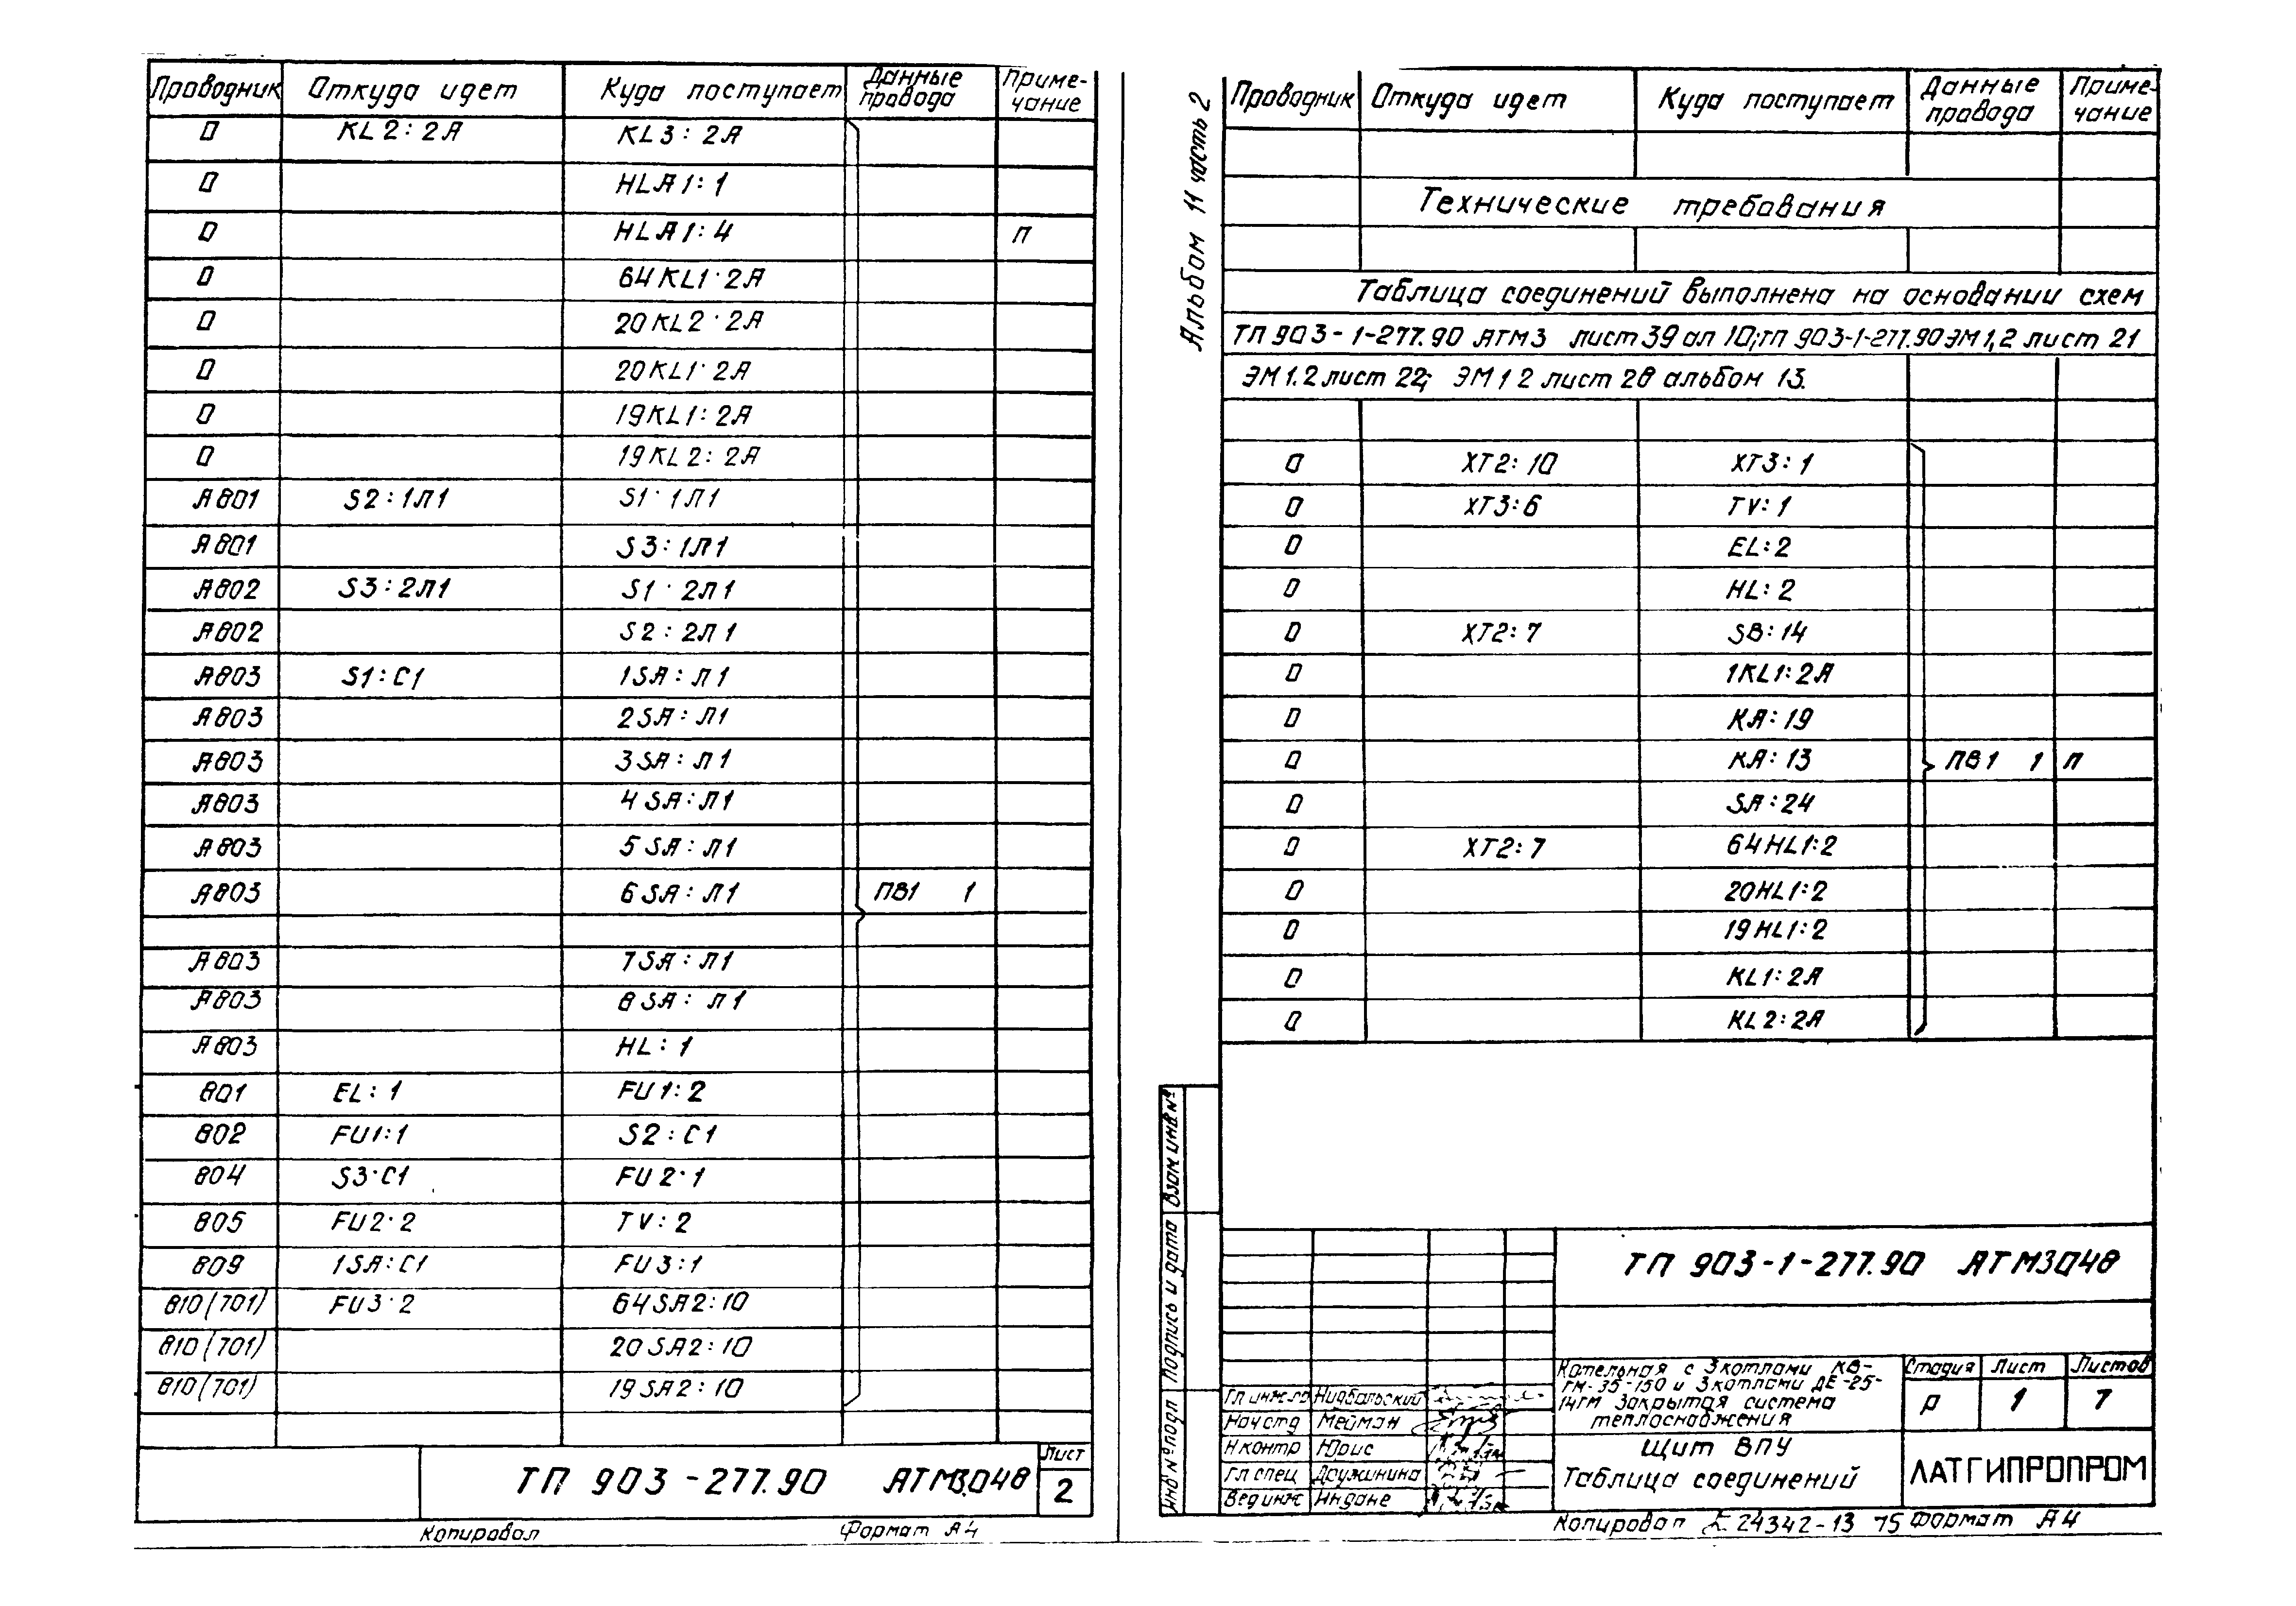 Проводник Откуда идет Куда поступает Данные провода Примечание
0 KL2: 2A KL3: 2A
0 HLA1: 1
0 HLA1: 4 П
0 64KL1· 2A
0 20KL2· 2A
0 20KL1· 2A
0 19KL1: 2A
0 19KL2: 2A
A801 S2: 1Л1 S1· 1Л1
A801 S3: 1Л1
A802 S3: 2Л1 S1· 2Л1
A802 S2: 2Л1
A803 S1: C1 1SA: Л1
A803 2SA: Л1
A803 3SA: Л1
A803 4SA: Л1
A803 5SA: Л1
A803 6SA: Л1 ПВ1 1
A803 7SA: Л1
A803 8SA: Л1
A803 HL: 1
801 EL: 1 FU1: 2
802 FU1: 1 S2: C1
804 S3· C1 FU2· 1
805 FU2· 2 TV: 2
809 1SA: C1 FU3: 1
810(701) FU3· 2 64SA2: 10
810(701) 20SA2: 10
810(701) 19SA2: 10
ТП 903-277.90 АТМ3.048
Лист
2
Копировал Формат А4
Альбом 11 часть 2
Проводник Откуда идет Куда поступает Данные провода Примечание
Технические требования
Таблица соединений выполнена на основании схем
ТП 903-1-277.90 АТМ3 лист 39 ал 10; ТП 903-1-277.90 ЭМ1,2 лист 21
ЭМ1.2 лист 22; ЭМ1 2 лист 28 альбом 13.
0 XT2: 10 XT3: 1
0 XT3: 6 TV: 1
0 EL: 2
0 HL: 2
0 XT2: 7 SB: 14
0 1KL1: 2A
0 KA: 19
0 KA: 13 ПВ1 1 П
0 SA: 24
0 XT2: 7 64HL1: 2
0 20HL1: 2
0 19HL1: 2
0 KL1: 2A
0 KL2: 2A
Взам инв №
Подпись и дата
Инв № подл
ТП 903-1-277.90 АТМ3048
Котельная с 3 котлами КВ-
ГМ-35-150 и 3 котлами ДЕ-25-
14ГМ Закрытая система
теплоснабжения
Стадия Лист Листов
Р 1 7
Гл инж пр Нидбальский
Нач отд Мейман
Н контр Юрис
Гл спец Дружинина
Вед инж Индане
Щит ВПУ
Таблица соединений
ЛАТГИПРОПРОМ
Копировал 24342-13 15 Формат А4